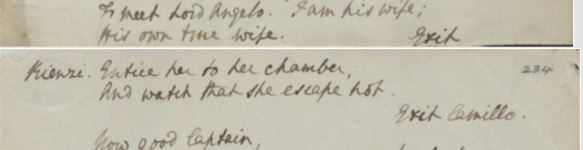 To meet Lord Angelo. I am his wife;
His own true wife. Exit
Rienzi. Entice her to her chamber, 234
And watch that she escape not.
Exit Camillo.
Now good Captain,